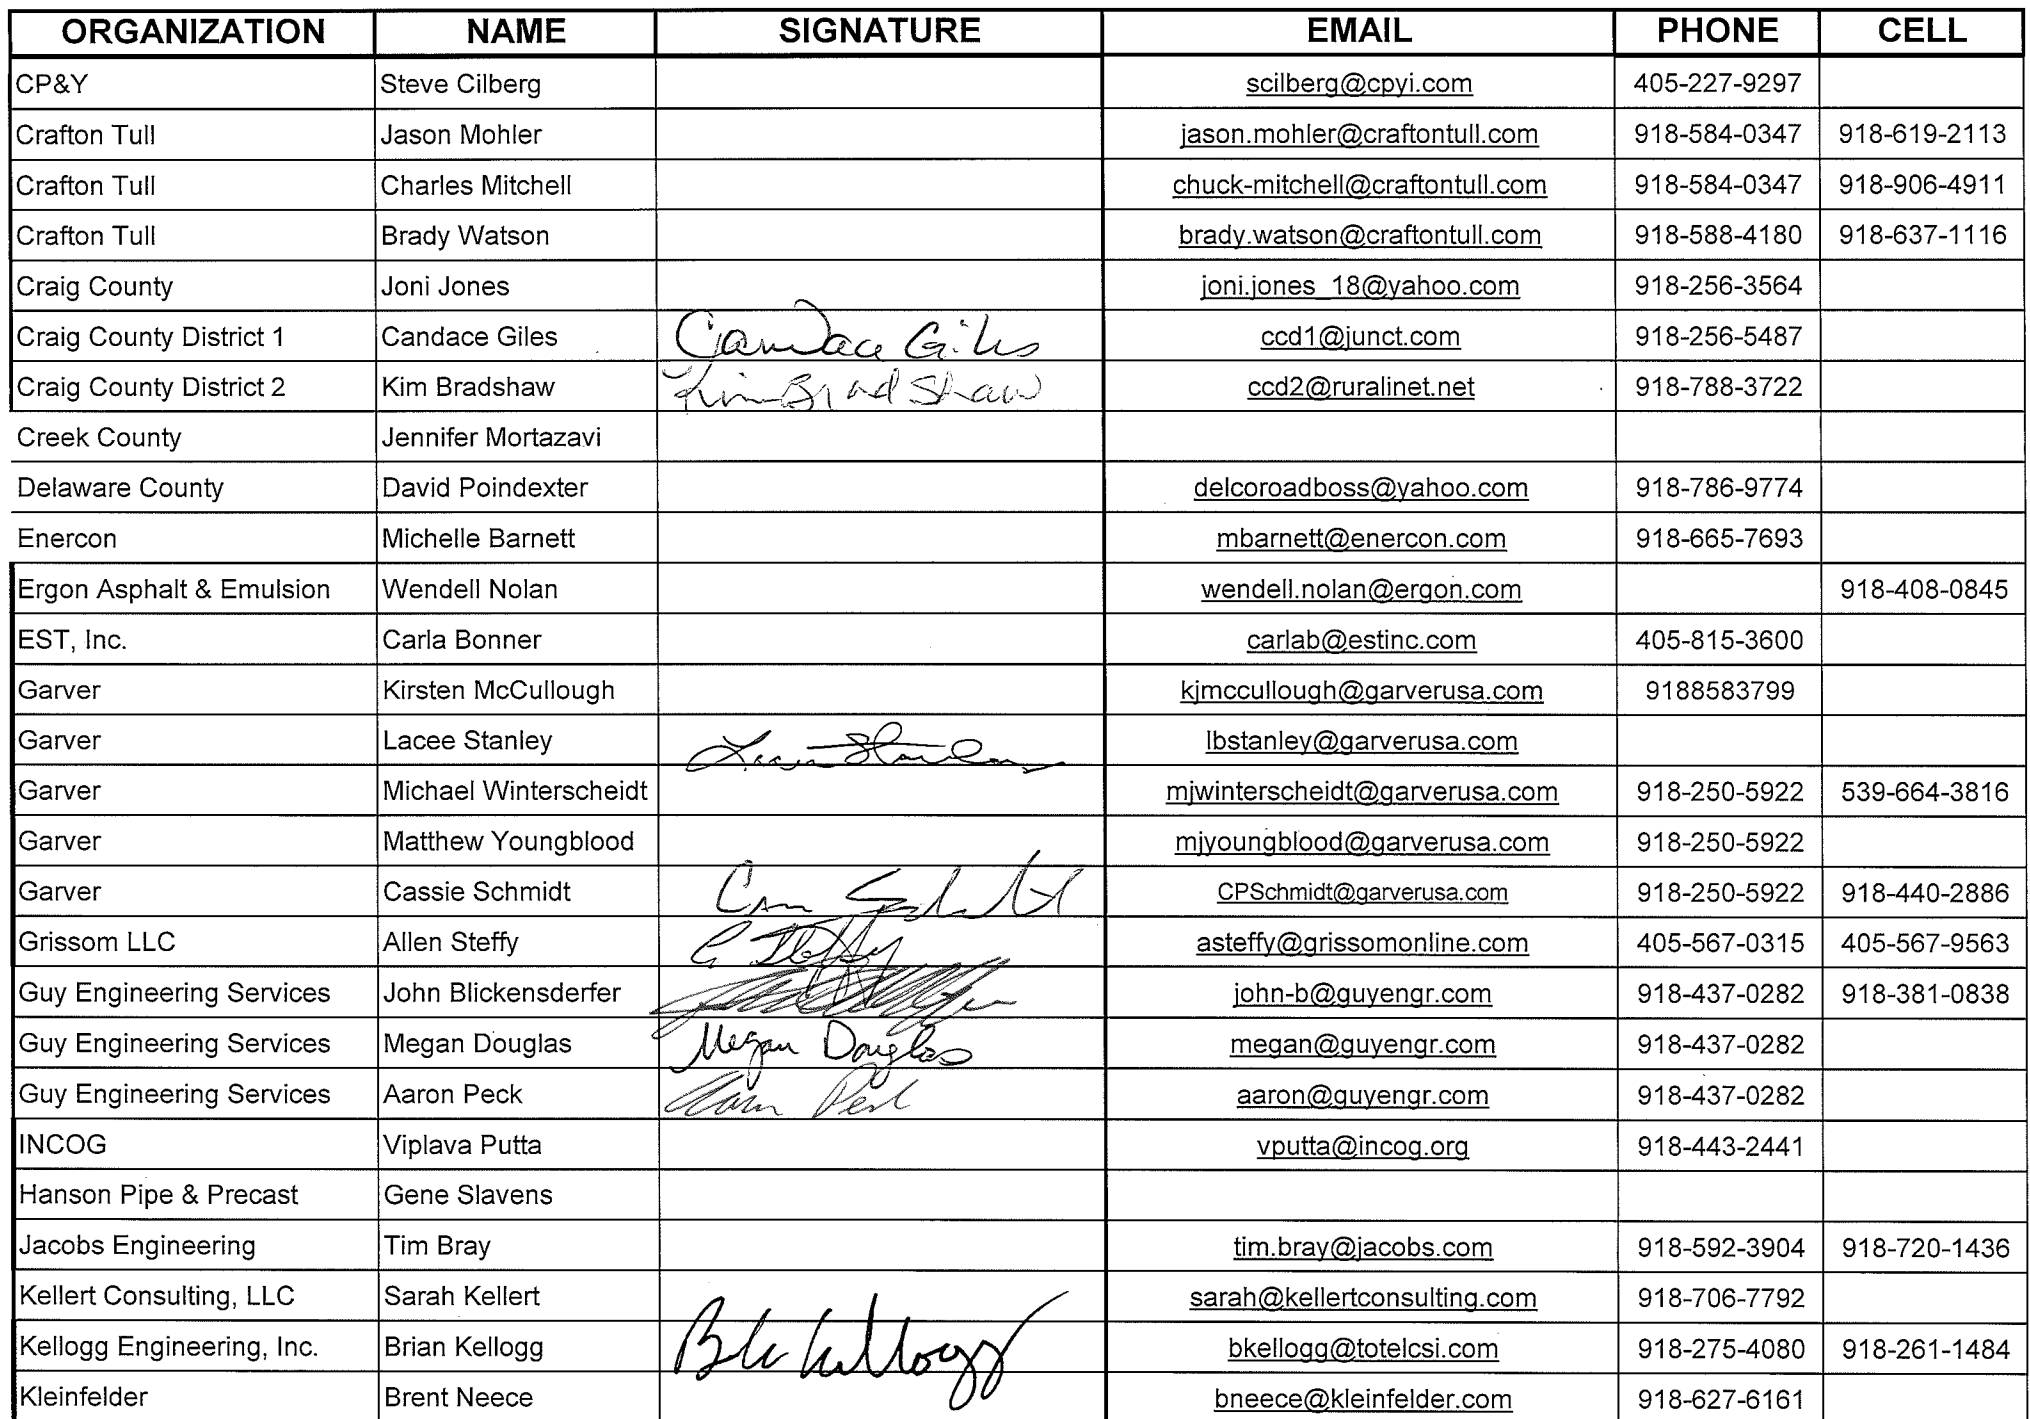 ORGANIZATION NAME SIGNATURE EMAIL PHONE CELL
CP&Y Steve Cilberg scilberg@cpyi.com 405-227-9297
Crafton Tull Jason Mohler jason.mohler@craftontull.com 918-584-0347 918-619-2113
Crafton Tull Charles Mitchell chuck-mitchell@craftontull.com 918-584-0347 918-906-4911
Crafton Tull Brady Watson brady.watson@craftontull.com 918-588-4180 918-637-1116
Craig County Joni Jones joni.jones_18@yahoo.com 918-256-3564
Craig County District 1 Candace Giles Candace Giles ccd1@junct.com 918-256-5487
Craig County District 2 Kim Bradshaw Kim BradShaw ccd2@ruralinet.net 918-788-3722
Creek County Jennifer Mortazavi
Delaware County David Poindexter delcoroadboss@yahoo.com 918-786-9774
Enercon Michelle Barnett mbarnett@enercon.com 918-665-7693
Ergon Asphalt & Emulsion Wendell Nolan wendell.nolan@ergon.com 918-408-0845
EST, Inc. Carla Bonner carlab@estinc.com 405-815-3600
Garver Kirsten McCullough kjmccullough@garverusa.com 9188583799
Garver Lacee Stanley Lacee Stanley lbstanley@garverusa.com
Garver Michael Winterscheidt mjwinterscheidt@garverusa.com 918-250-5922 539-664-3816
Garver Matthew Youngblood mjyoungblood@garverusa.com 918-250-5922
Garver Cassie Schmidt CPSchmidt@garverusa.com 918-250-5922 918-440-2886
Grissom LLC Allen Steffy asteffy@grissomonline.com 405-567-0315 405-567-9563
Guy Engineering Services John Blickensderfer john-b@guyengr.com 918-437-0282 918-381-0838
Guy Engineering Services Megan Douglas Megan Douglas megan@guyengr.com 918-437-0282
Guy Engineering Services Aaron Peck Aaron Peck aaron@guyengr.com 918-437-0282
INCOG Viplava Putta vputta@incog.org 918-443-2441
Hanson Pipe & Precast Gene Slavens
Jacobs Engineering Tim Bray tim.bray@jacobs.com 918-592-3904 918-720-1436
Kellert Consulting, LLC Sarah Kellert sarah@kellertconsulting.com 918-706-7792
Kellogg Engineering, Inc. Brian Kellogg Kellogg bkellogg@totelcsi.com 918-275-4080 918-261-1484
Kleinfelder Brent Neece bneece@kleinfelder.com 918-627-6161